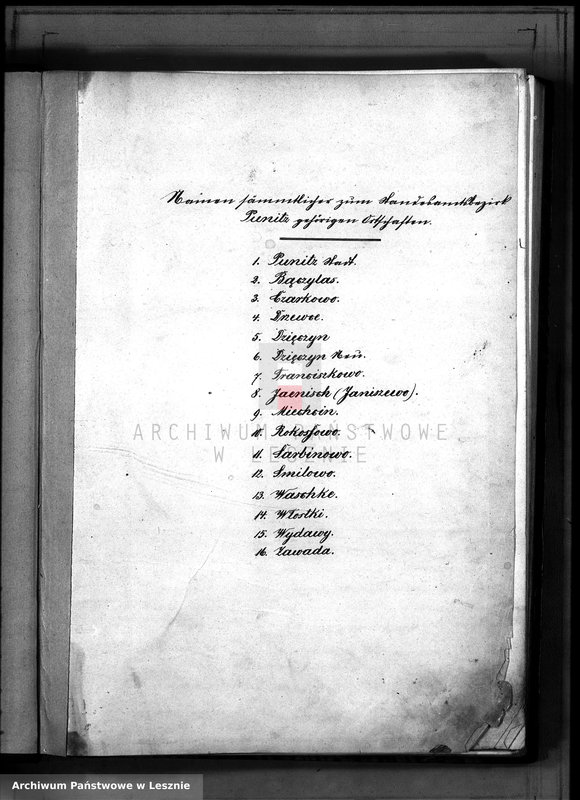 Namen sämmtlicher zum Standesamtsbezirk
Punitz gehörigen Ortschaften.
1. Punitz Stadt.
2. Bączylas.
3. Czarkowo.
4. Drzewce.
5. Dzięczyn
6. Dzięczyn Neu.
7. Franciszkowo.
8. Jaenisch (Janiszewo).
9. Miechcin.
10. Rokossowo.
11. Sarbinowo.
12. Smilowo.
13. Waschke.
14. Włostki.
15. Wydawy.
16. Zawada.
ARCHIWUM PAŃSTWOWE
W LESZNIE
Archiwum Państwowe w Lesznie